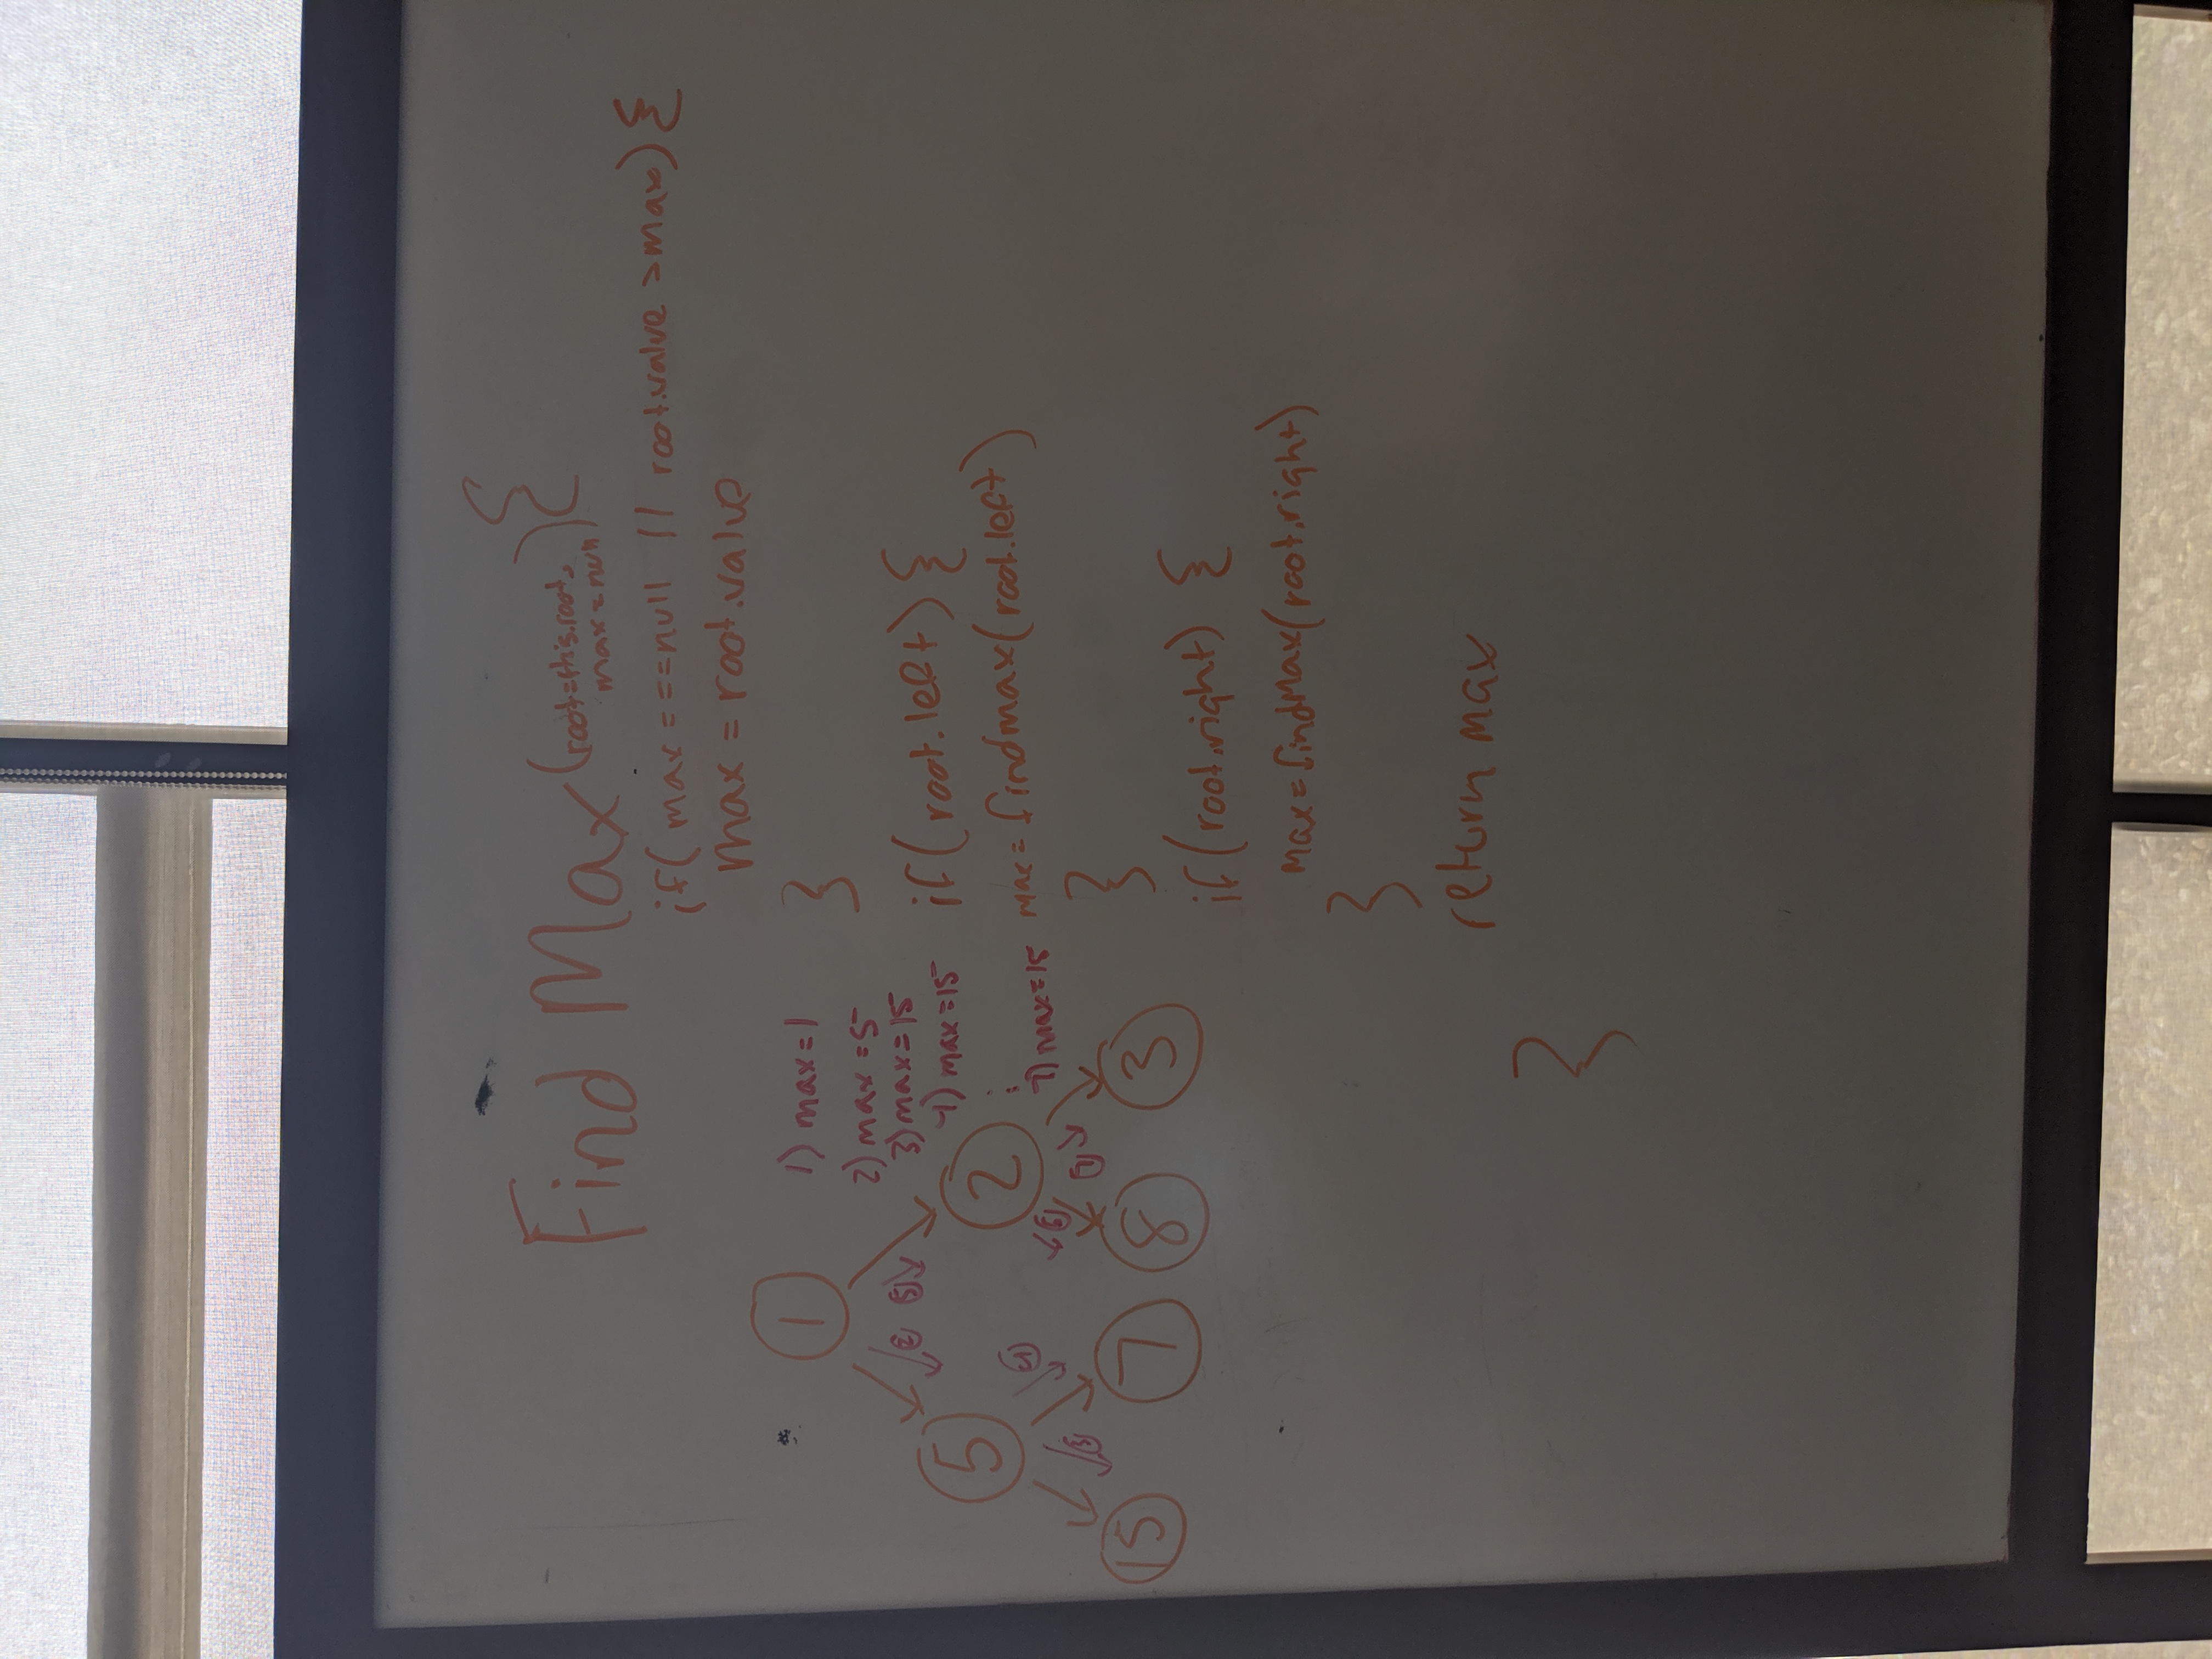 Find Max (root=this.root,
max=null) {
if( max ===null || root.value >max) {
max = root.value
}
if(root.left) {
max = findmax(root.left)
}
if(root.right) {
max=findMax(root.right)
}
return max
}
1
2 5
5 2
3 4 6 7
15 7 8 3
1) max=1
2) max=5
3) max=15
4) max=15
:
7) max=15